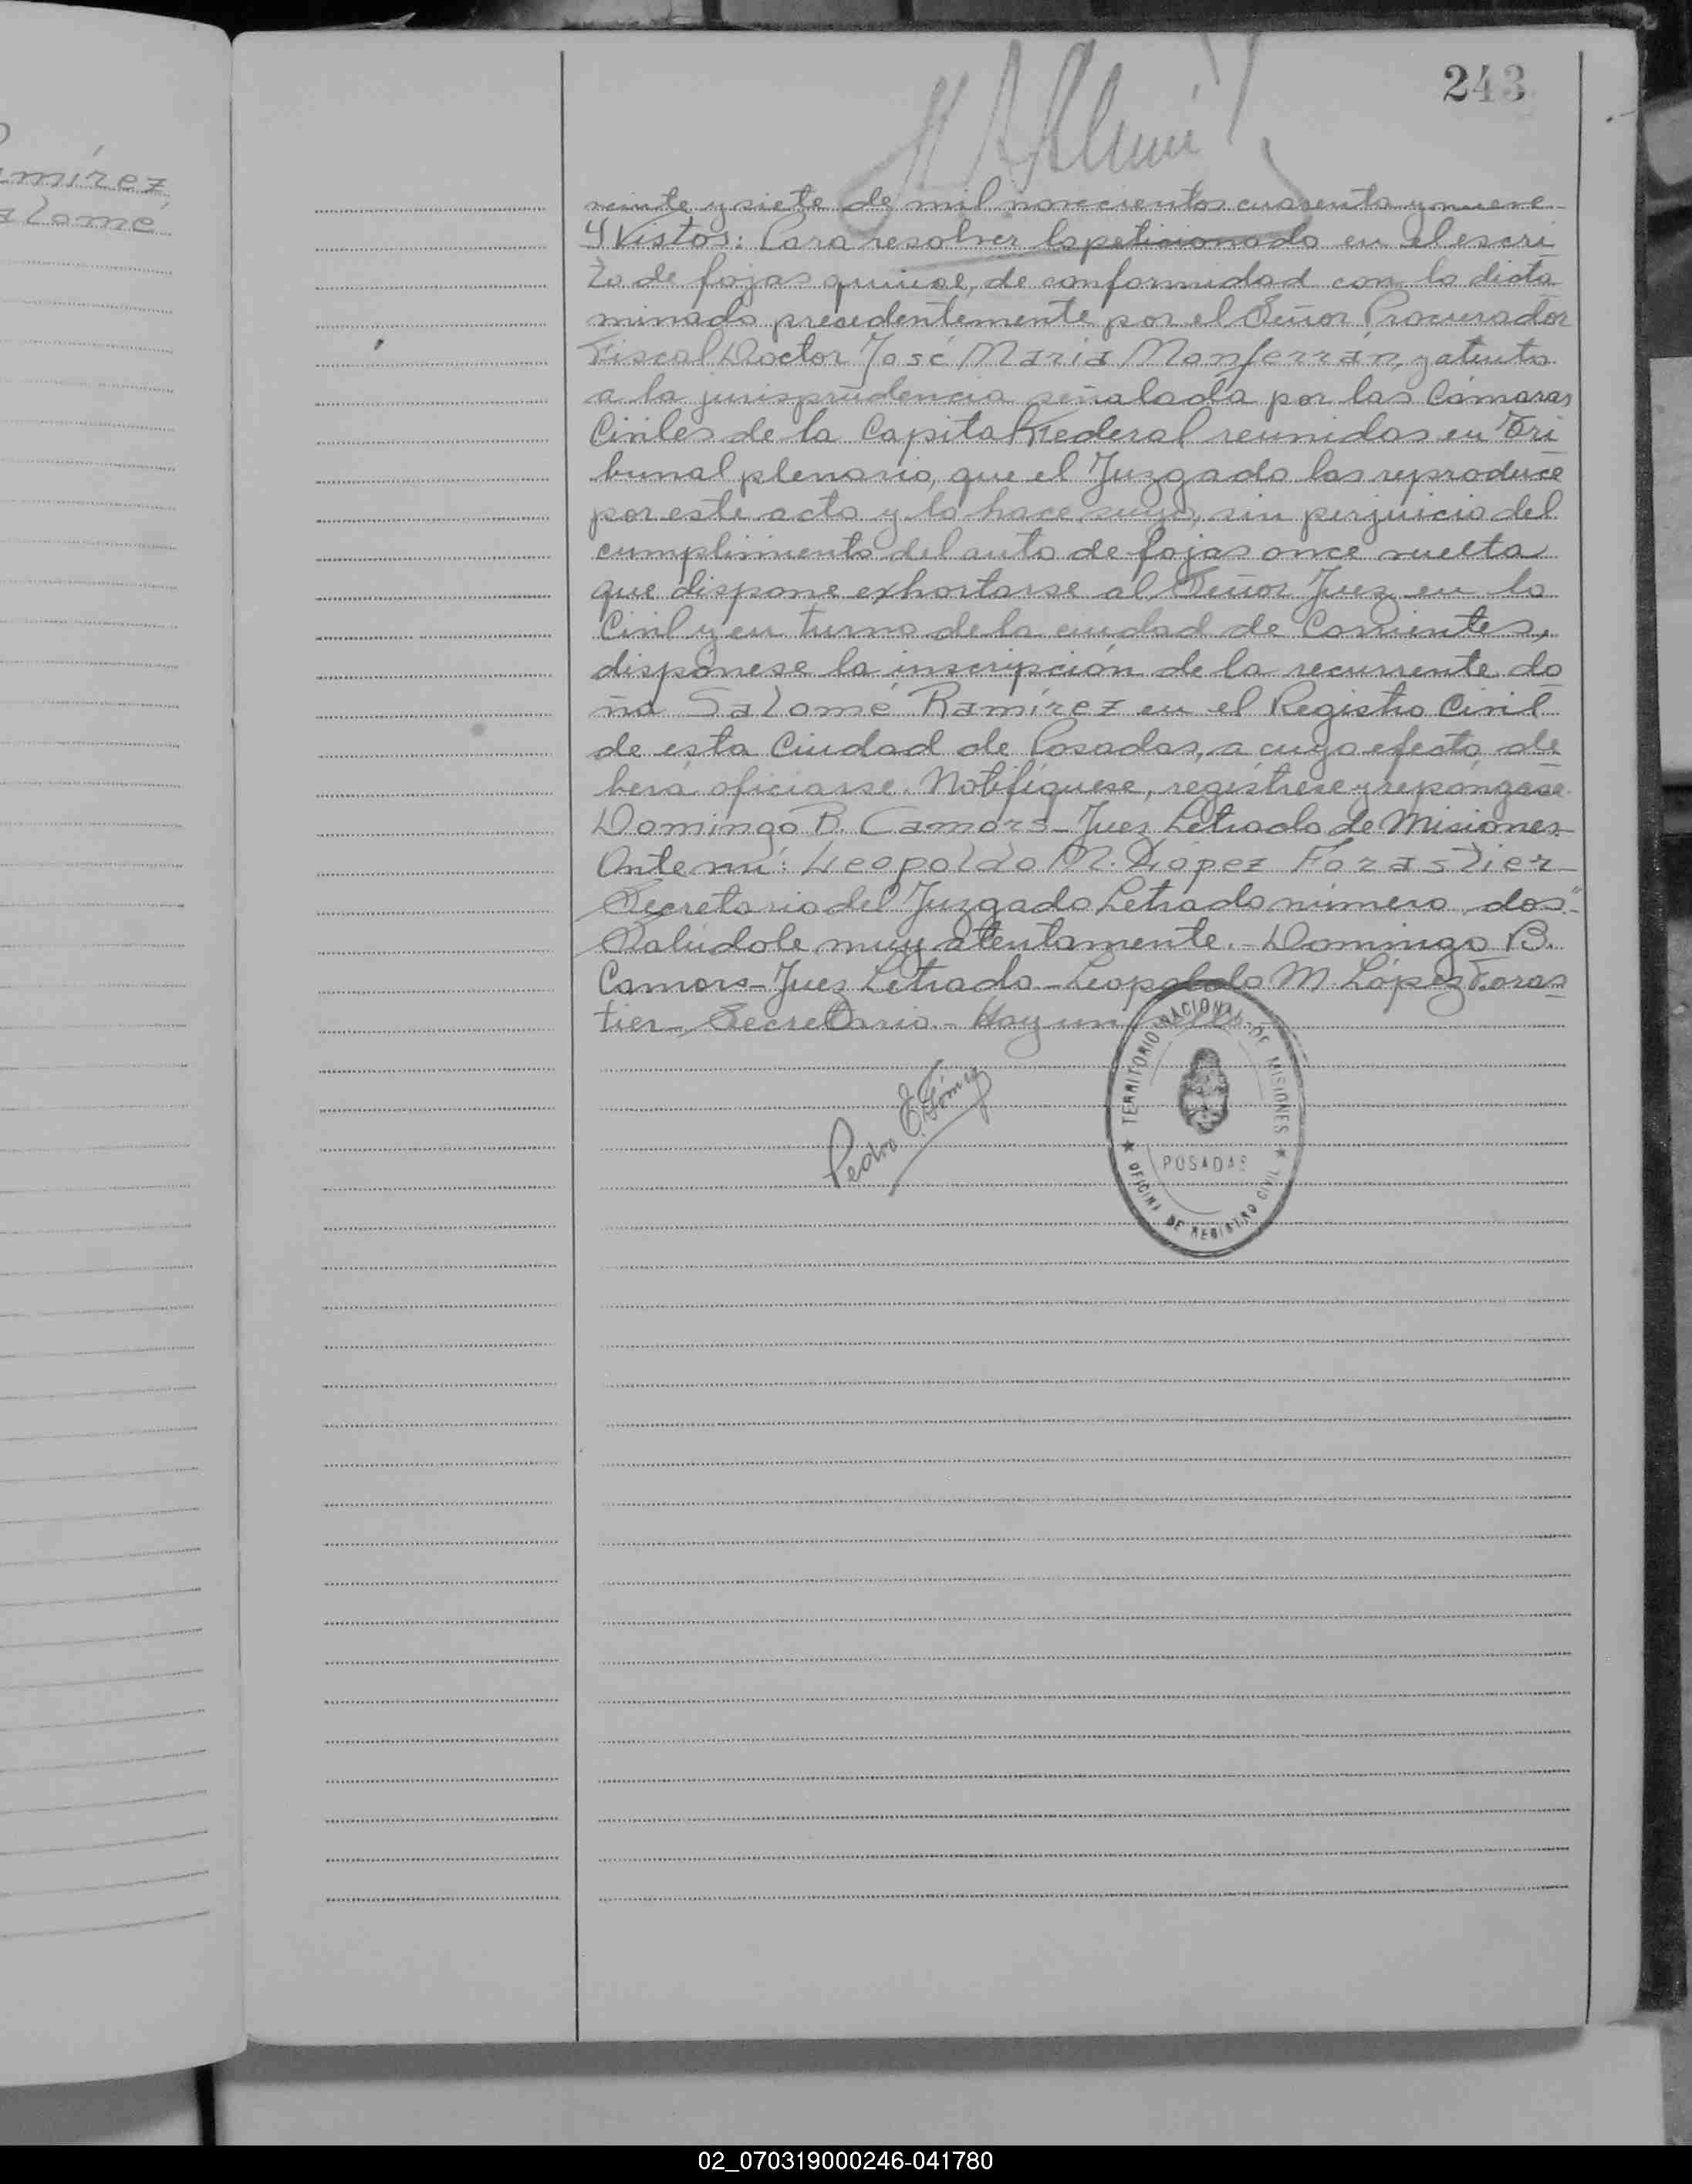 243
amírez
alomé
veinte y siete de mil novecientos cuarenta y nueve
Y Vistos: Para resolver lo peticionado en el escri
to de fojas quince, de conformidad con lo dicta
minado precedentemente por el Señor Procurador
Fiscal Doctor José María Monferrán, y atento
a la jurisprudencia señalada por las Cámaras
Civiles de la Capital Federal reunidas en Tri
bunal plenario, que el Juzgado las reproduce
por este acto y lo hace suyo, sin perjuicio del
cumplimiento del auto de fojas once vuelta
que dispone exhortarse al Señor Juez en lo
Civil y en turno de la ciudad de Corrientes,
dispónese la inscripción de la recurrente do
ña Salomé Ramírez en el Registro Civil
de esta Ciudad de Posadas, a cuyo efecto de
berá oficiarse. Notifíquese, regístrese y repóngase
Domingo B. Camors - Juez Letrado de Misiones
Ante mí: Leopoldo M. López Forastier -
Secretario del Juzgado Letrado número dos."-
Salúdole muy atentamente. - Domingo B.
Camors - Juez Letrado - Leopoldo M. López Foras
tier - Secretario. - Hay un sello. -
Pedro E. Gómez
TERRITORIO NACIONAL DE MISIONES
POSADAS
OFICINA DE REGISTRO CIVIL
02_070319000246-041780